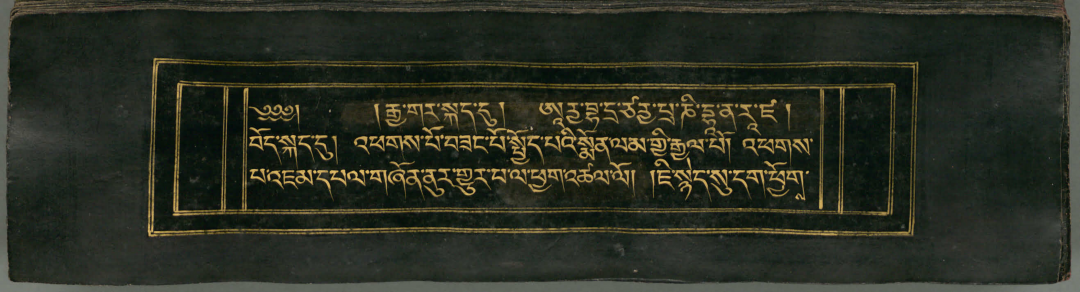 ༄༅༅། །རྒྱ་གར་སྐད་དུ། ཨཱརྱ་བྷ་དྲ་ཙརྱ་པྲ་ཎི་དྷཱ་ན་རཱ་ཛ།
བོད་སྐད་དུ། འཕགས་པོ་བཟང་པོ་སྤྱོད་པའི་སྨོན་ལམ་གྱི་རྒྱལ་པོ། འཕགས་
པ་འཇམ་དཔལ་གཞོན་ནུར་གྱུར་པ་ལ་ཕྱག་འཚལ་ལོ། །ཇི་སྙེད་སུ་དག་ཕྱོགྶ་